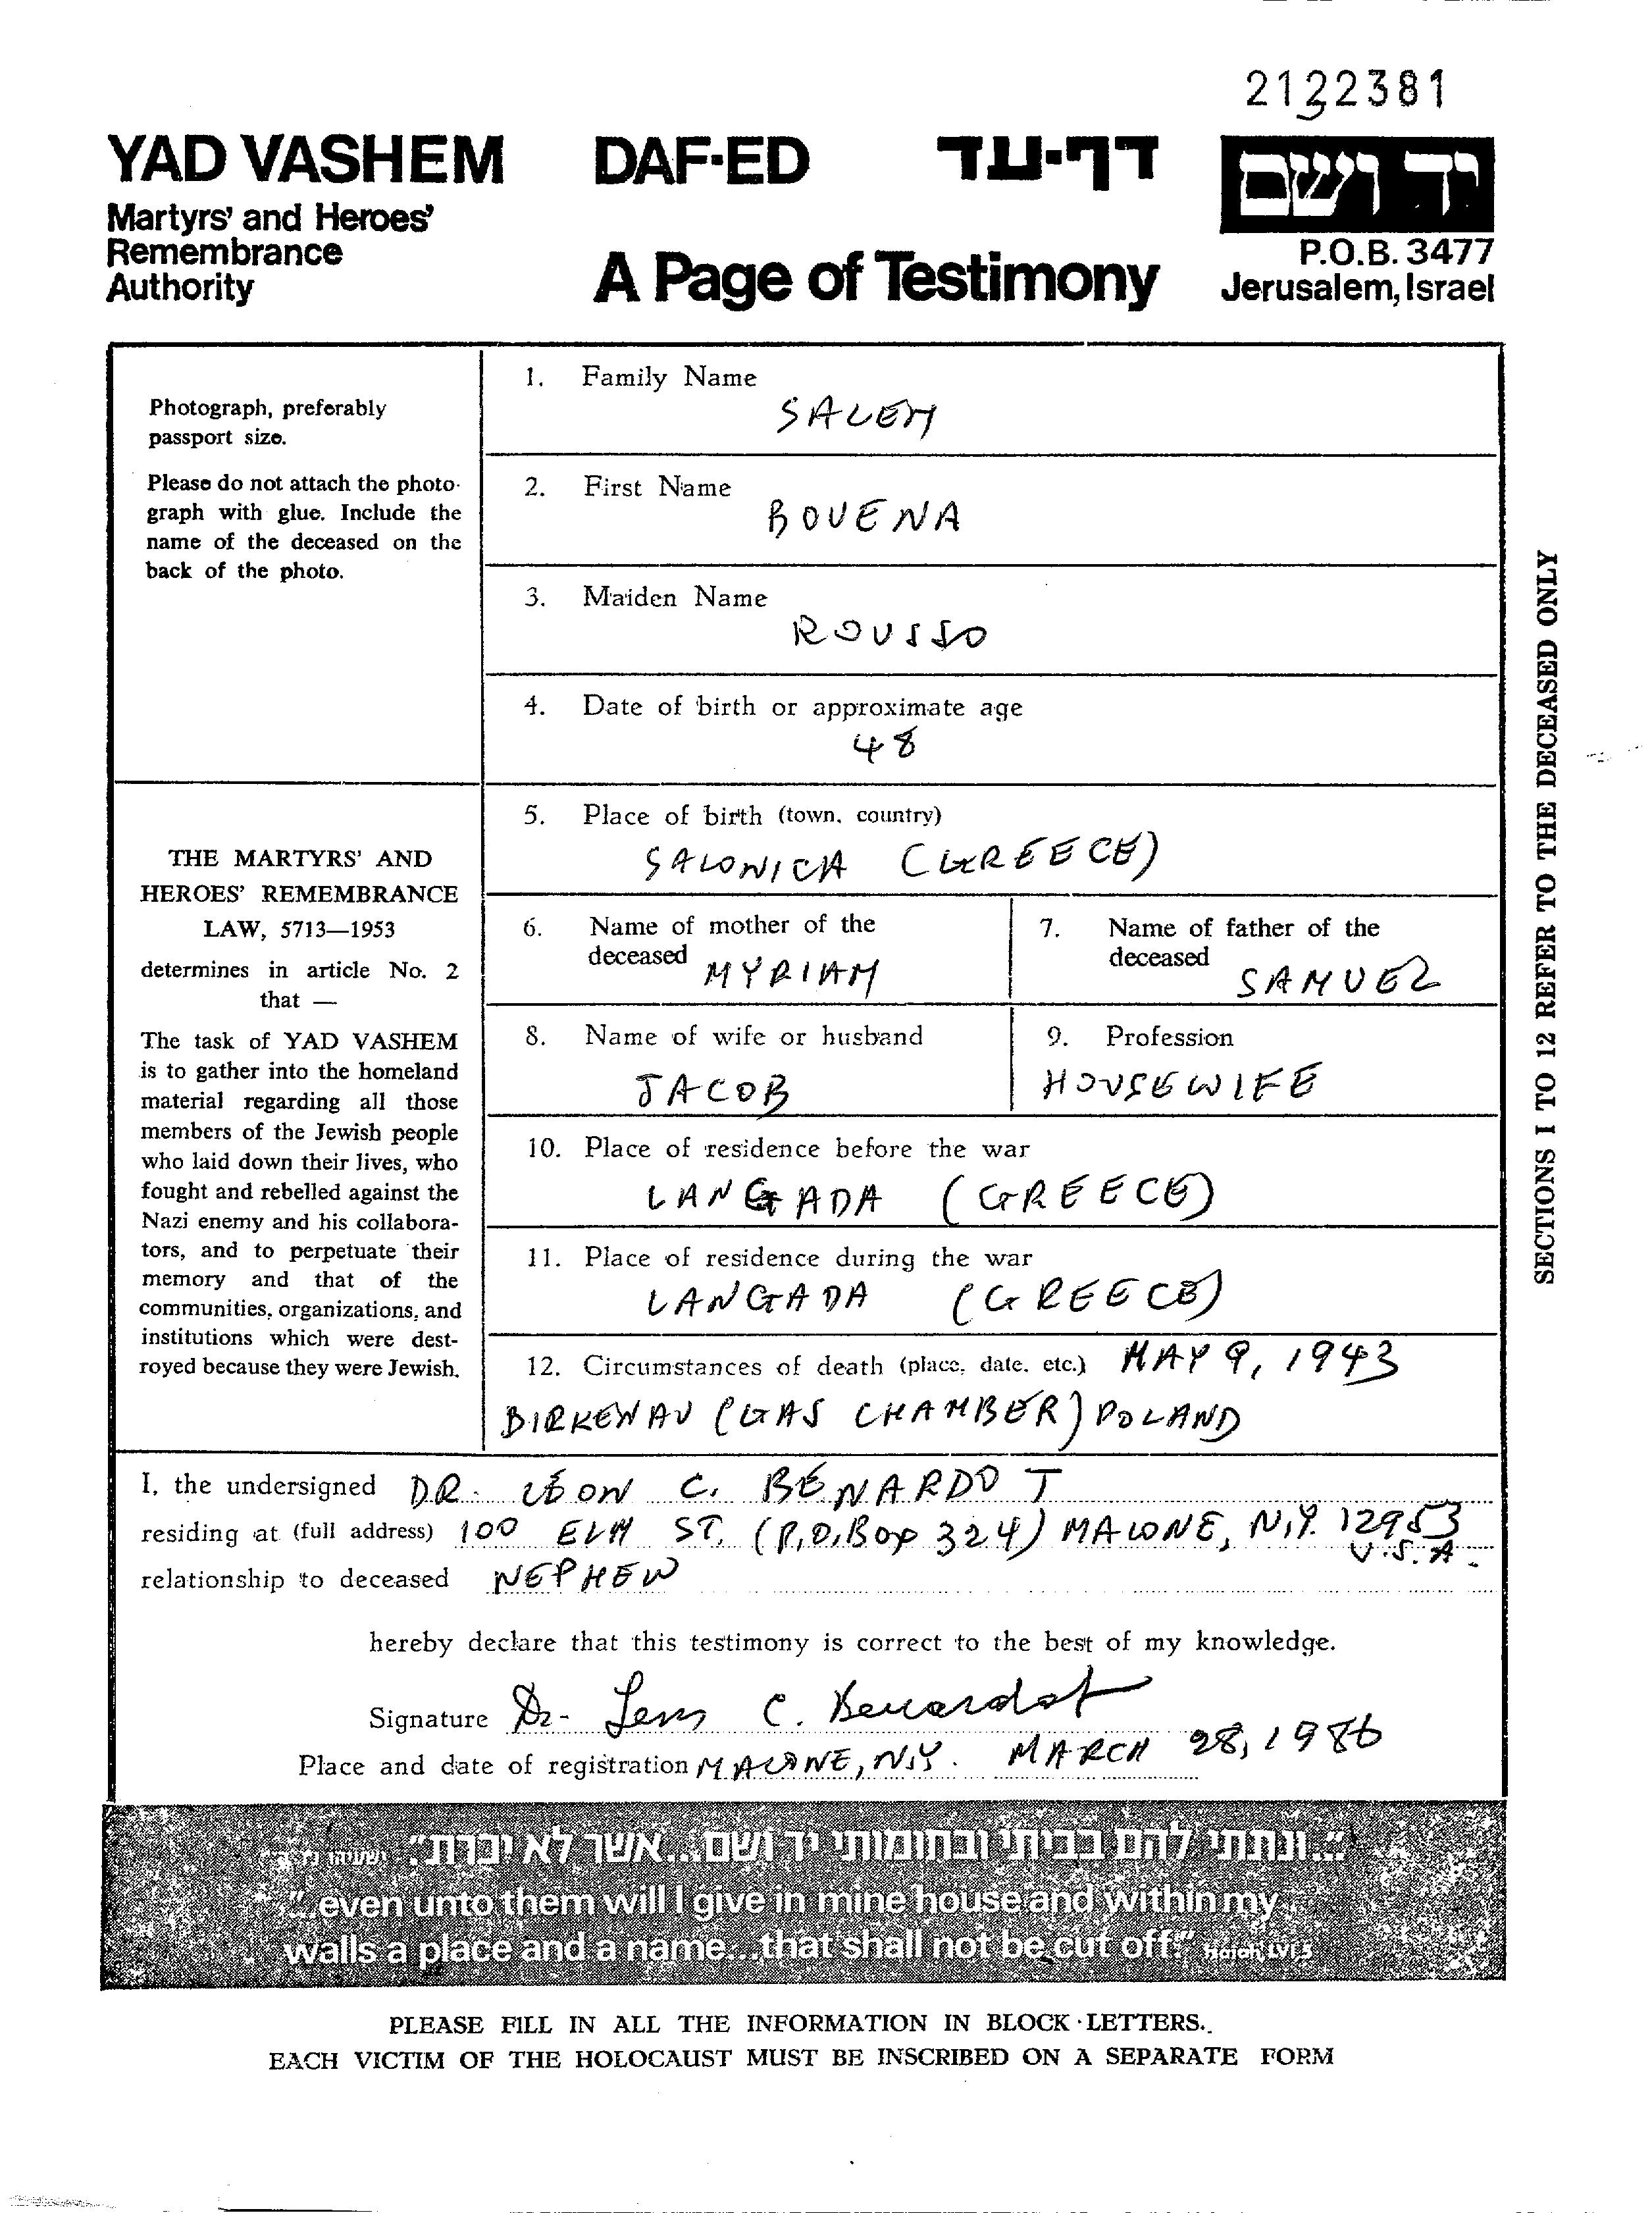 2122381
YAD VASHEM DAF-ED דף-עד יד ושם
Martyrs' and Heroes'
Remembrance
Authority
A Page of Testimony
P.O.B. 3477
Jerusalem, Israel
Photograph, preferably
passport size.
Please do not attach the photo-
graph with glue. Include the
name of the deceased on the
back of the photo.
THE MARTYRS' AND
HEROES' REMEMBRANCE
LAW, 5713—1953
determines in article No. 2
that —
The task of YAD VASHEM
is to gather into the homeland
material regarding all those
members of the Jewish people
who laid down their lives, who
fought and rebelled against the
Nazi enemy and his collabora-
tors, and to perpetuate their
memory and that of the
communities, organizations, and
institutions which were dest-
royed because they were Jewish.
1. Family Name
SALEM
2. First Name
BOUENA
3. Maiden Name
ROUSSO
4. Date of birth or approximate age
48
5. Place of birth (town, country)
SALONICA (GREECE)
6. Name of mother of the
deceased MYRIAM
7. Name of father of the
deceased SAMUEL
8. Name of wife or husband
JACOB
9. Profession
HOUSEWIFE
10. Place of residence before the war
LANGADA (GREECE)
11. Place of residence during the war
LANGADA (GREECE)
12. Circumstances of death (place, date, etc.) MAY 9, 1943
BIRKENAU (GAS CHAMBER) POLAND
SECTIONS 1 TO 12 REFER TO THE DECEASED ONLY
I, the undersigned DR. LEON C. BENARDOT
residing at (full address) 100 ELM ST. (P.O. Box 324) MALONE, N.Y. 12953
U.S.A.
relationship to deceased NEPHEW
hereby declare that this testimony is correct to the best of my knowledge.
Signature Dr. Leon C. Benardot
Place and date of registration MALONE, N.Y. MARCH 28, 1986
"...ונתתי להם בביתי ובחומותי יד ושם...אשר לא יכרת". ישעיהו נ"ו ה'
"...even unto them will I give in mine house and within my
walls a place and a name...that shall not be cut off." Isaiah LVI 5
PLEASE FILL IN ALL THE INFORMATION IN BLOCK LETTERS.
EACH VICTIM OF THE HOLOCAUST MUST BE INSCRIBED ON A SEPARATE FORM